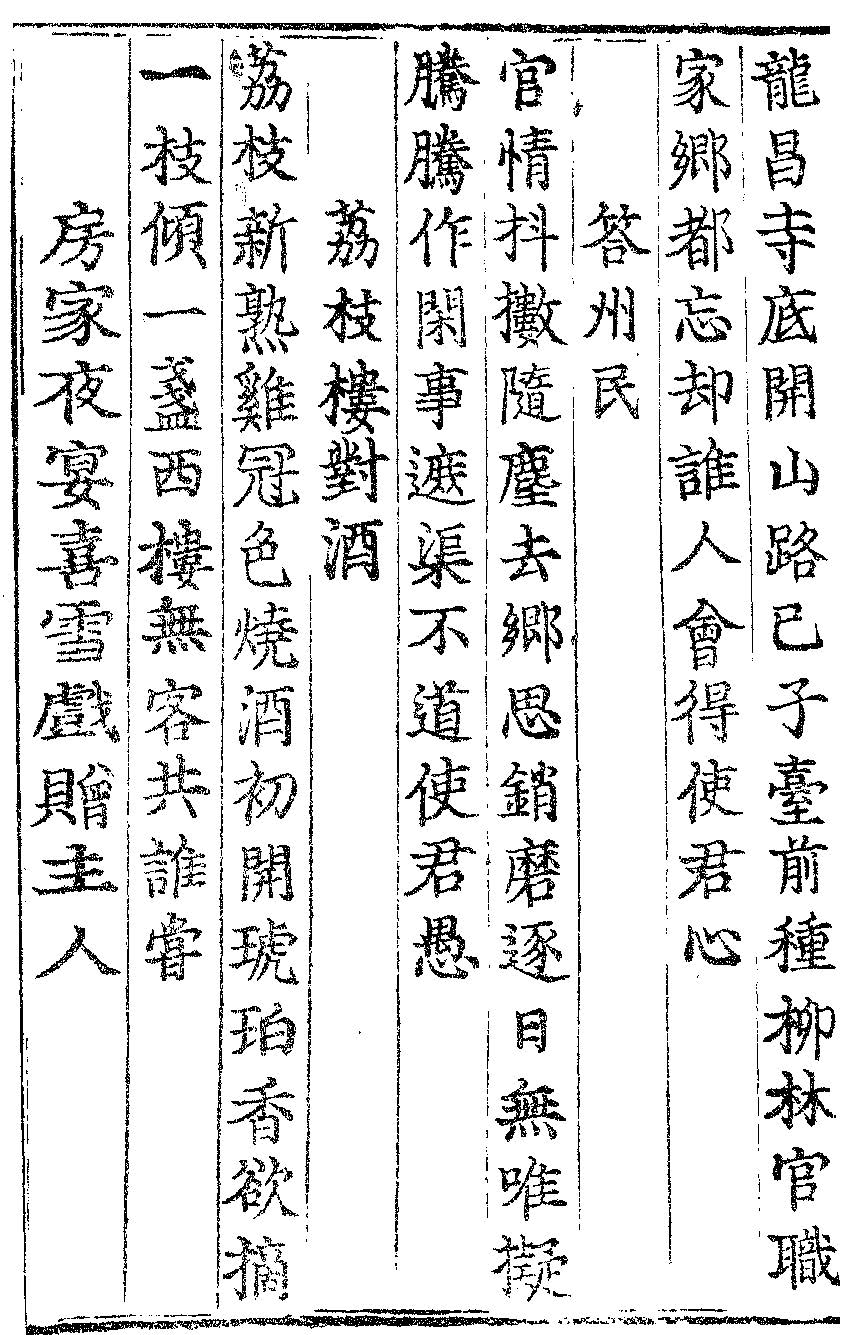 龍昌寺底開山路巳子臺前種柳林官職
家鄉都忘却誰人會得使君心
答州民
官情抖擻隨塵去鄉思銷磨逐日無唯擬
騰騰作閑事遮渠不道使君愚
荔枝樓對酒
荔枝新熟雞冠色燒酒初開琥珀香欲摘
一枝傾一盞西樓無客共誰嘗
房家夜宴喜雪戲贈主人